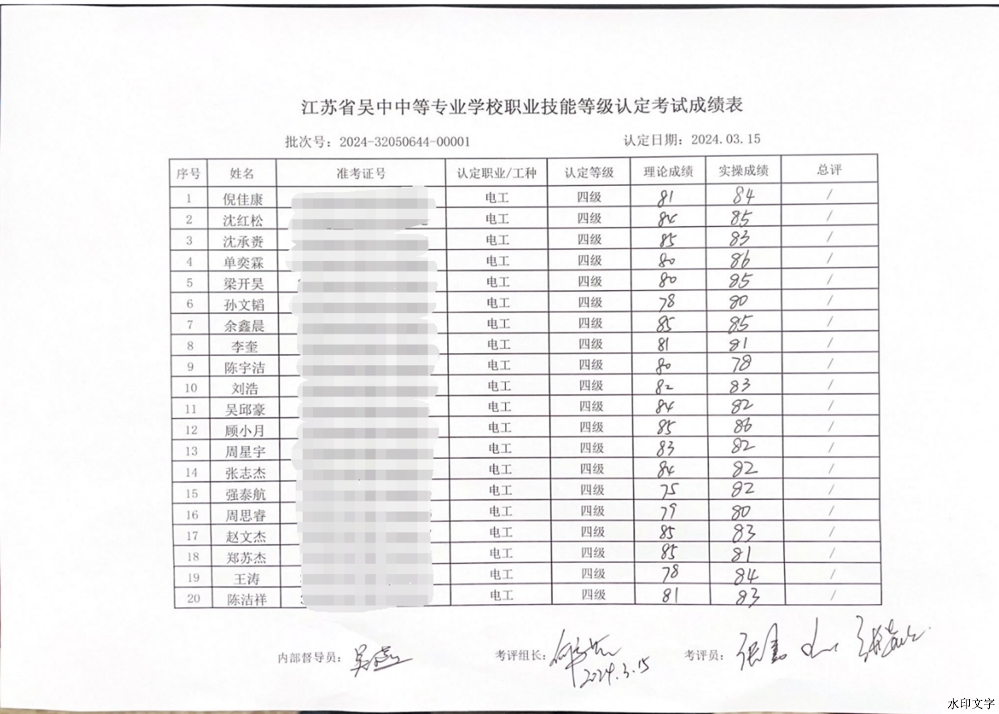 江苏省吴中中等专业学校职业技能等级认定考试成绩表
批次号：2024-32050644-00001 认定日期：2024.03.15
序号 姓名 准考证号 认定职业/工种 认定等级 理论成绩 实操成绩 总评
1 倪佳康 电工 四级 81 84 /
2 沈红松 电工 四级 84 85 /
3 沈承赉 电工 四级 85 83 /
4 单奕霖 电工 四级 80 86 /
5 梁开昊 电工 四级 80 85 /
6 孙文韬 电工 四级 78 80 /
7 余鑫晨 电工 四级 85 85 /
8 李奎 电工 四级 81 81 /
9 陈宇洁 电工 四级 80 78 /
10 刘浩 电工 四级 82 83 /
11 吴邱豪 电工 四级 84 82 /
12 顾小月 电工 四级 85 86 /
13 周星宇 电工 四级 83 82 /
14 张志杰 电工 四级 84 82 /
15 强泰航 电工 四级 75 82 /
16 周思睿 电工 四级 79 80 /
17 赵文杰 电工 四级 85 83 /
18 郑苏杰 电工 四级 85 81 /
19 王涛 电工 四级 78 84 /
20 陈洁祥 电工 四级 81 83 /
内部督导员： 考评组长： 考评员：
2024.3.15
水印文字